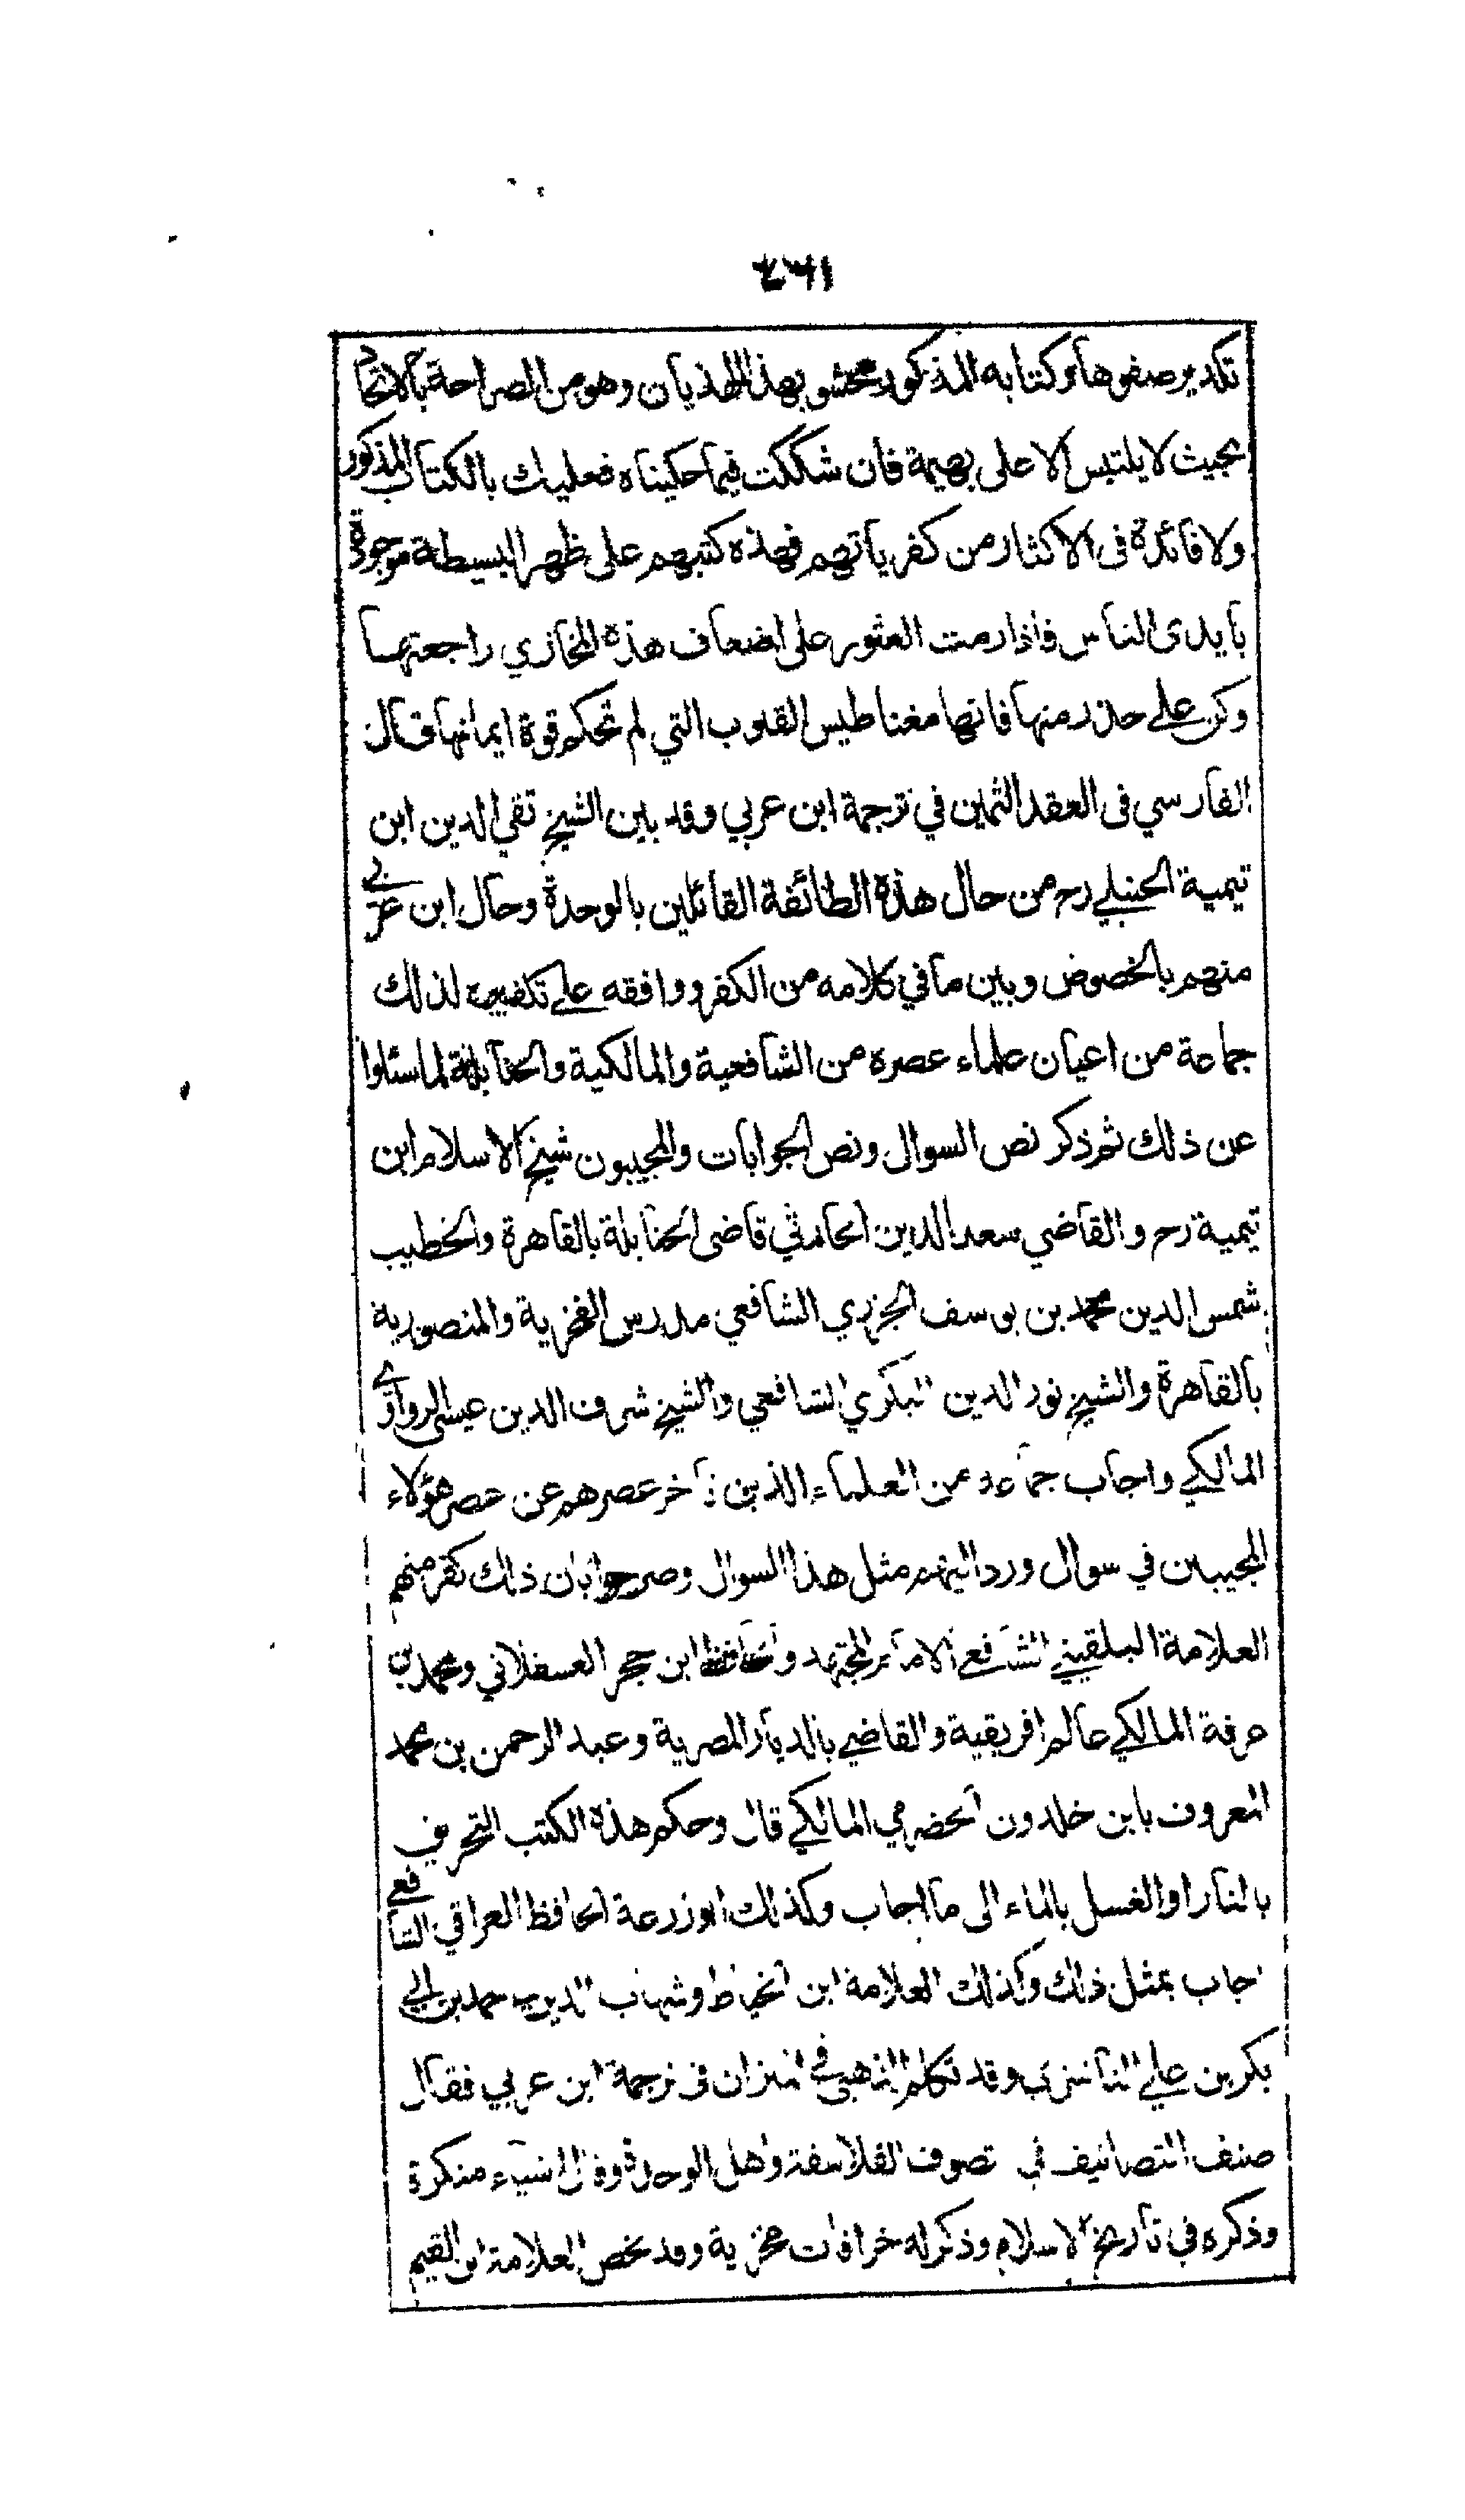 تكدير صفوها وكتابه المذكور محشو بهذا الهذيان وهو من الصراحة بالاتحاد
بحيث لا يلتبس الا على بهيمة فان شككت فيما حكيناه فعليك بالكتاب المذكور
ولا فائدة فى الاكثار من كفرياتهم فهذه كتبهم على ظهر البسيطة موجودة
بايدى الناس فاذا رمت العثور على اضعاف هذه المخازي راجعتها
وكن على حذر منها فانها مغناطيس القلوب التي لم تحكم قوة ايمانها قال
الفارسي فى العقد الثمين في ترجمة ابن عربي وقد بين الشيخ تقي الدين ابن
تيمية الحنبلي رح من حال هذة الطائفة القائلين بالوحدة وحال ابن عربي
منهم بالخصوص وبين ما في كلامه من الكفر ووافقه على تكفيره لذلك
جماعة من اعيان علماء عصره من الشافعية والمالكية والحنابلة لما سئلوا
عن ذلك ثم ذكر نص السوال ونص الجوابات والمجيبون شيخ الاسلام ابن
تيمية رح والقاضي سعد الدين الحارثي قاضى الحنابلة بالقاهرة والخطيب
شمس الدين محمد بن يوسف الجزري الشافعي مدرس الفخرية والمنصورية
بالقاهرة والشيخ نور الدين البكري الشافعي والشيخ شرف الدين عيسى الزواوي
المالكي واجاب جماعة من العلماء الذين تأخر عصرهم عن عصر هؤلاء
المجيبين في سوال ورد اليهم مثل هذا السوال وصرحوا بان ذلك كفر منهم
العلامة البلقيني الشافعي الامام المجتهد والحافظ ابن حجر العسقلاني ومحمد بن
عرفة المالكي عالم افريقية والقاضي بالديار المصرية وعبد الرحمن بن محمد
المعروف بابن خلدون الحضرمي المالكي قال وحكم هذه الكتب التحريق
بالنار او الغسل بالماء الى ما اجاب وكذلك ابو زرعة الحافظ العراقي الشافعي
اجاب بمثل ذلك وكذلك العلامة ابن الخياط وشهاب الدين احمد بن ابي
بكر بن علي الناشري وقد تكلم الذهبي في الميزان فى ترجمة ابن عربي فقال
صنف التصانيف في تصوف الفلاسفة واهل الوحدة وقال اشياء منكرة
وذكره في تاريخ الاسلام وذكر له خرافات مخزية وقد لخص العلامة ابن القيم